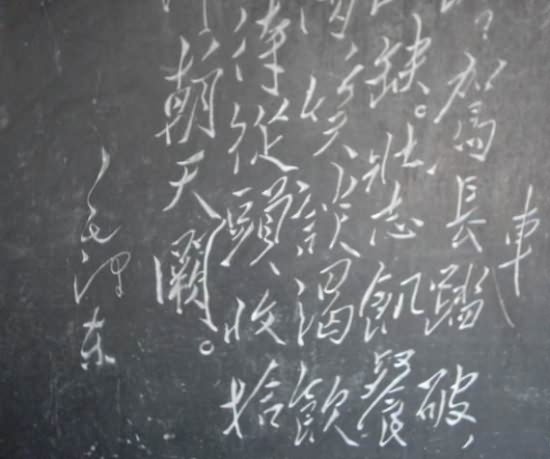 駕長車踏破，
缺。壯志飢餐
笑談渴飲
待從頭收拾
朝天闕。
毛澤东